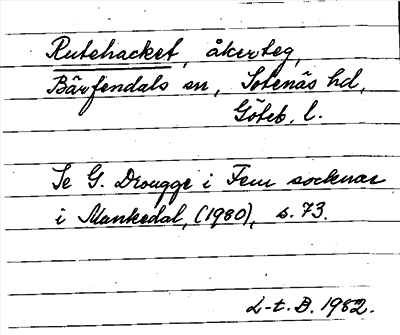 Rutehacket, åkerteg,
Bärfendals sn, Sotenäs hd,
Göteb. l.
Se G. Drougge i Fem socknar
i Munkedal, (1980), s. 73.
L-t. B. 1982.